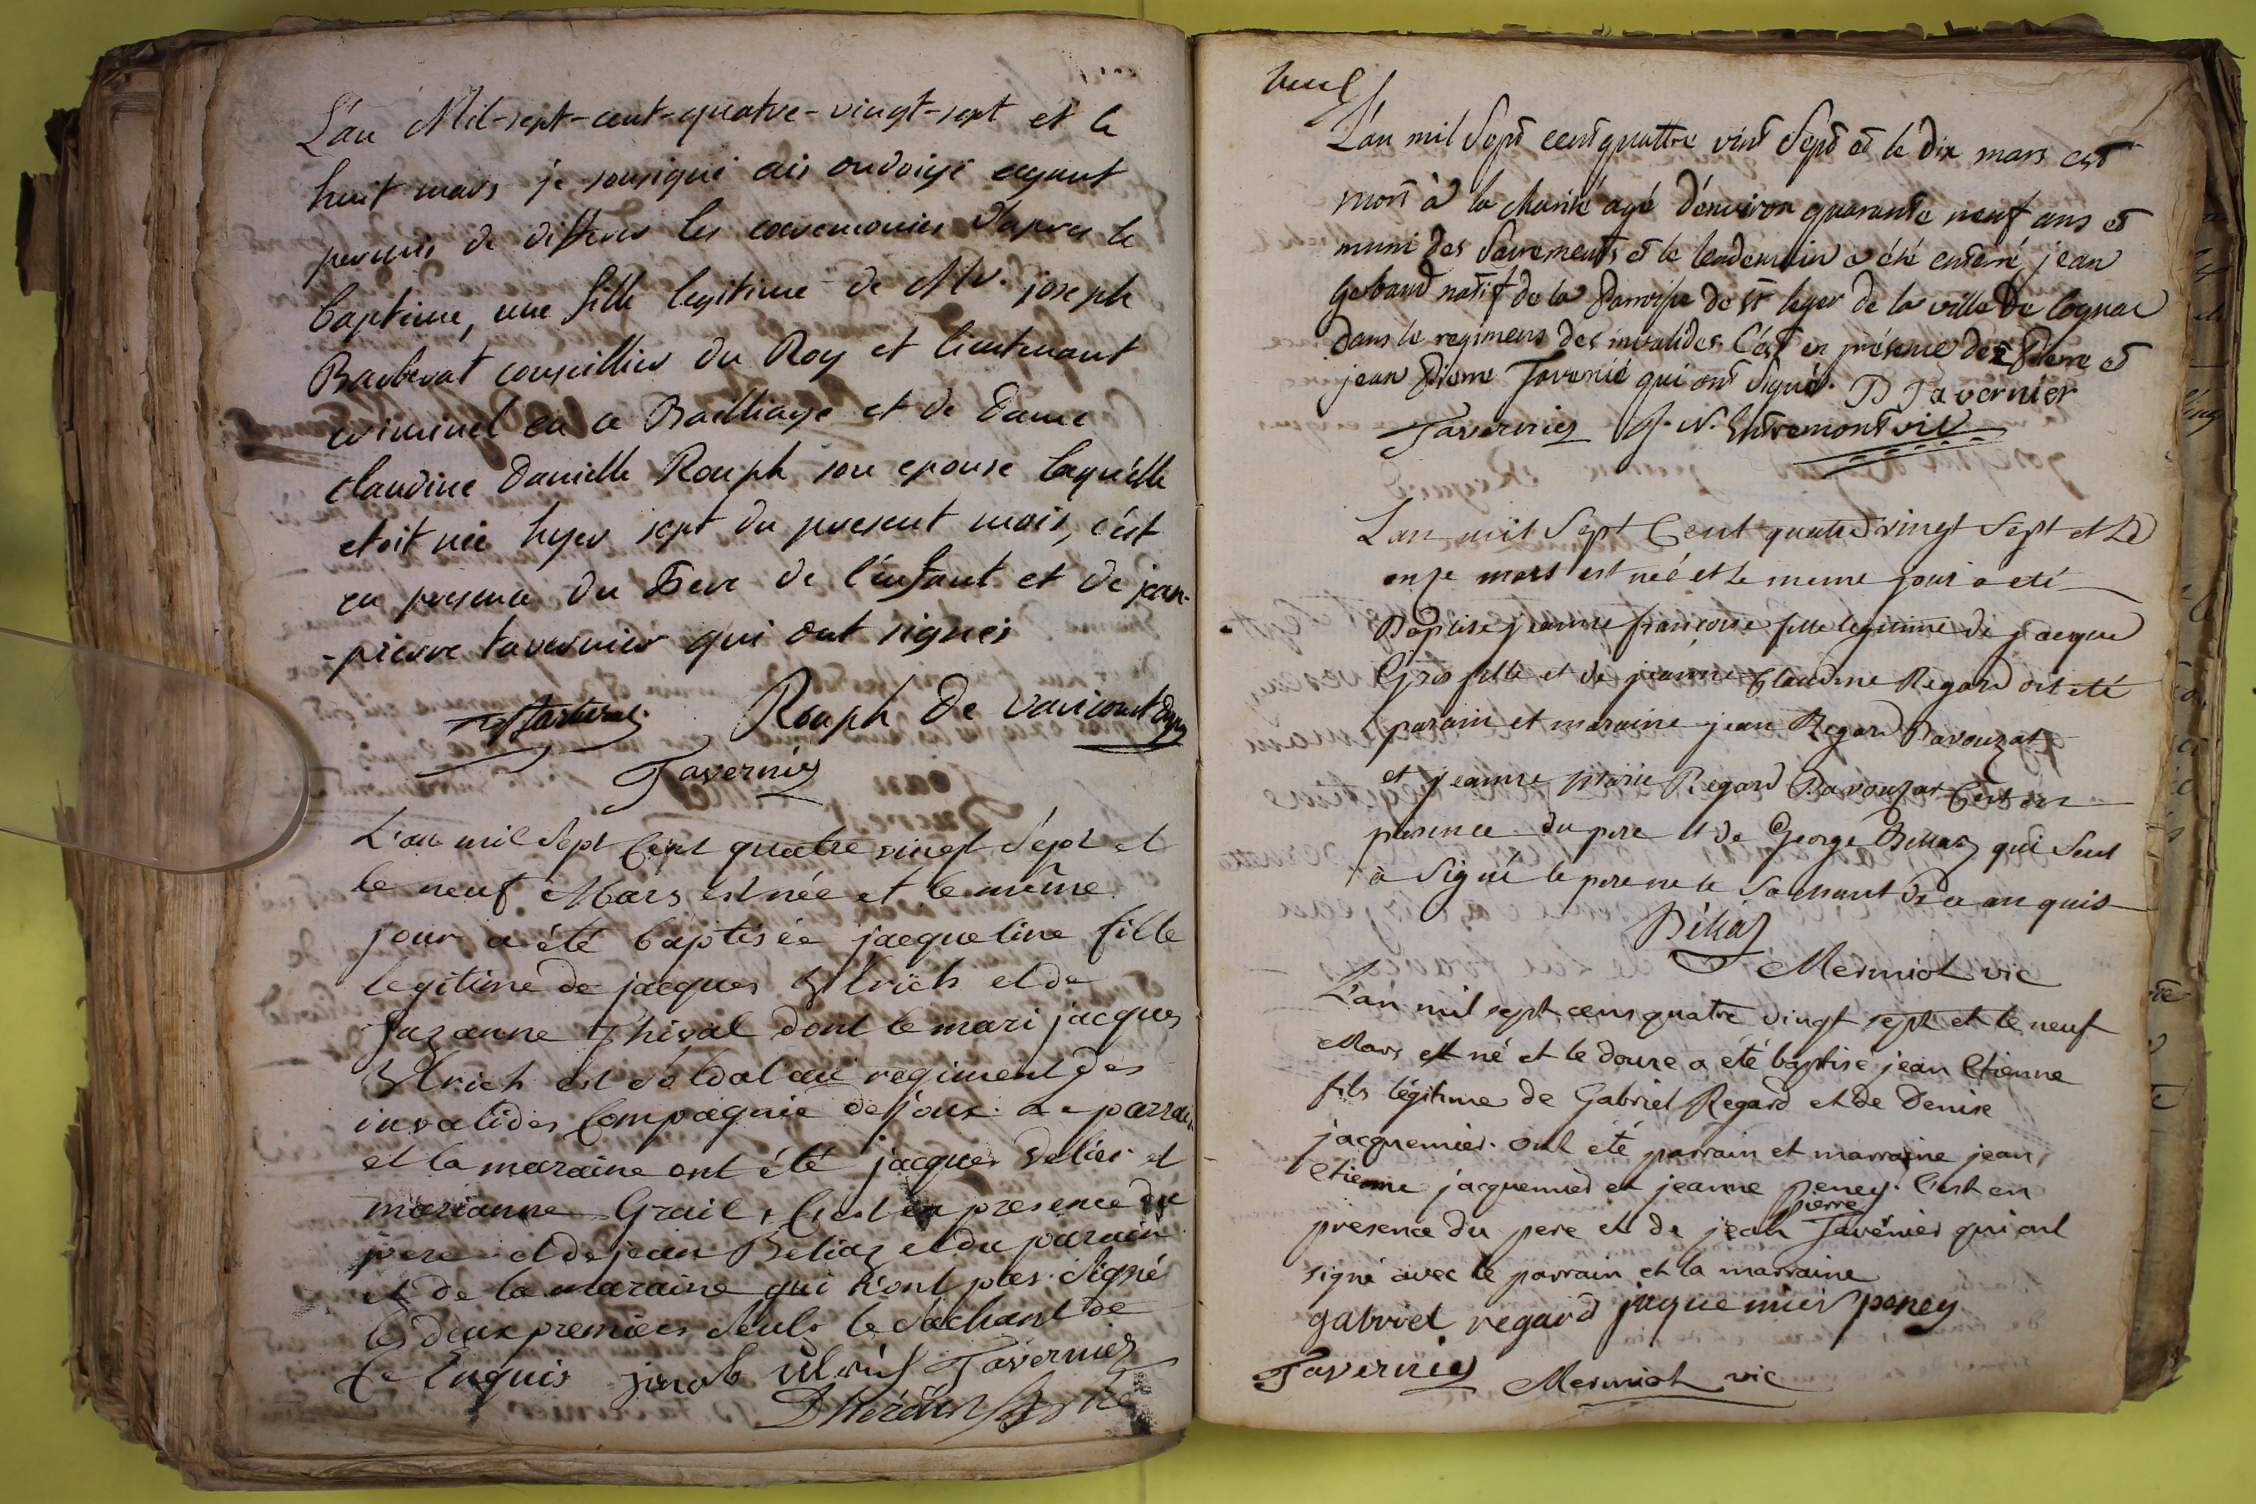 L'an Mil-sept-cent-quatre-vingt-sept et le
huit mars je sousigné ais ondoiyé ayant
permis de differer les ceremonies d'apres le
baptême, une fille legitime de Mr. joseph
Barberat conseillier du Roy et lieutenant
criminel en ce Bailliage et de Dame
claudine Danielle Rouph son epouse laquelle
etoit née hyer sept du present mois, c'est
en presence du Pere de l'enfant et de jean-
-pierre tavernier qui ont signés
Rouph de varicourt
Tavernier
L'an mil sept Cent quatre vingt sept et
le neuf Mars est née et le même
jour a été baptisée jacqueline fille
legitime de jacques Ulrich et de
Suzanne Thival dont le mari jacques
Ulrich est soldat au regiment des
invalides Compagnie de joux. Le parrain
et la maraine ont été jacques et
marianne Grail, C'est en presence du
pere et de jean Beliaz et du parain
et de la maraine qui n'ont pas signé
les deux premiers seuls le sachant de
ce Enquis jacob ulrich Tavernier
L'an mil Sept cent quattre vint Sept et le dix mars est
mort à la charité agé d'environ quarante neuf ans et
muni des Sacrements et le lendemain a été enterré jean
Gebaud natif de la Parroisse de St leger de la ville De Cognac
dans le regiment des invalides C'est en présence de Pierre et
jean Pierre Tavernié qui ont signés. P Tavernier
Tavernier J. N. Entremont vic
L'an mil Sept Cent quatre vingt Sept et Le
onze mars est née et le meme jour a eté
Baptisé jeanne françoise fille legitime de jacque
Gros fille et de jeanne Claudine Regard ont eté
parain et maraine jean Regard Pavouzat
et jeanne Marie Regard Pavouzat C'est en
presence du pere et de George Béliaz qui Seul
a Signé le pere ne le Sachant De ce anquis
Béliaz
Mermiot vic
L'an mil sept cens quatre vingt sept et le neuf
Mars est né et le douze a été baptisé jean Etienne
fils légitime de Gabriel Regard et de Denise
jacquemier. Ont été parrain et marraine jean
Etienne jacquemier et jeanne Peney. C'est en
pierre
presence du pere et de jean Tavernier qui ont
signé avec le parrain et la marraine
gabriel regard jaquemier peney
Tavernier Mermiot vic